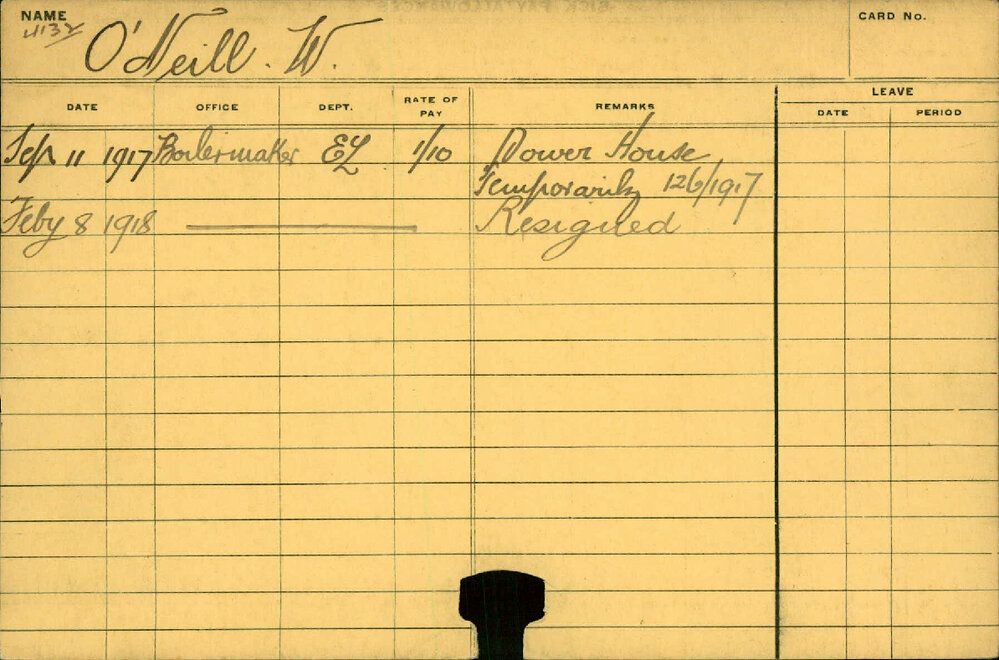 NAME
4132
O'Neill. W.
CARD No.
DATE OFFICE DEPT. RATE OF PAY REMARKS LEAVE
DATE PERIOD
Sep 11 1917 Boilermaker EL 1/10 Power House,
Temporarily 126/1917
Feby 8 1918 Resigned